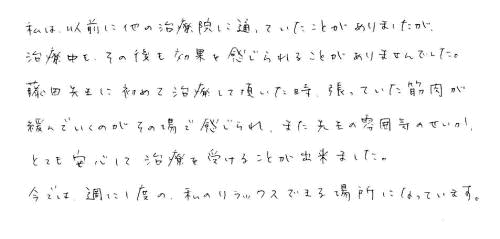 私は、以前に他の治療院に通っていたことがありましたが、
治療中も、その後も効果を感じられることがありませんでした。
藤田先生に初めて治療して頂いた時、張っていた筋肉が
緩んでいくのがその場で感じられ、また先生の雰囲気のせいか、
とても安心して治療を受けることが出来ました。
今では、週に1度の、私のリラックスできる場所になっています。